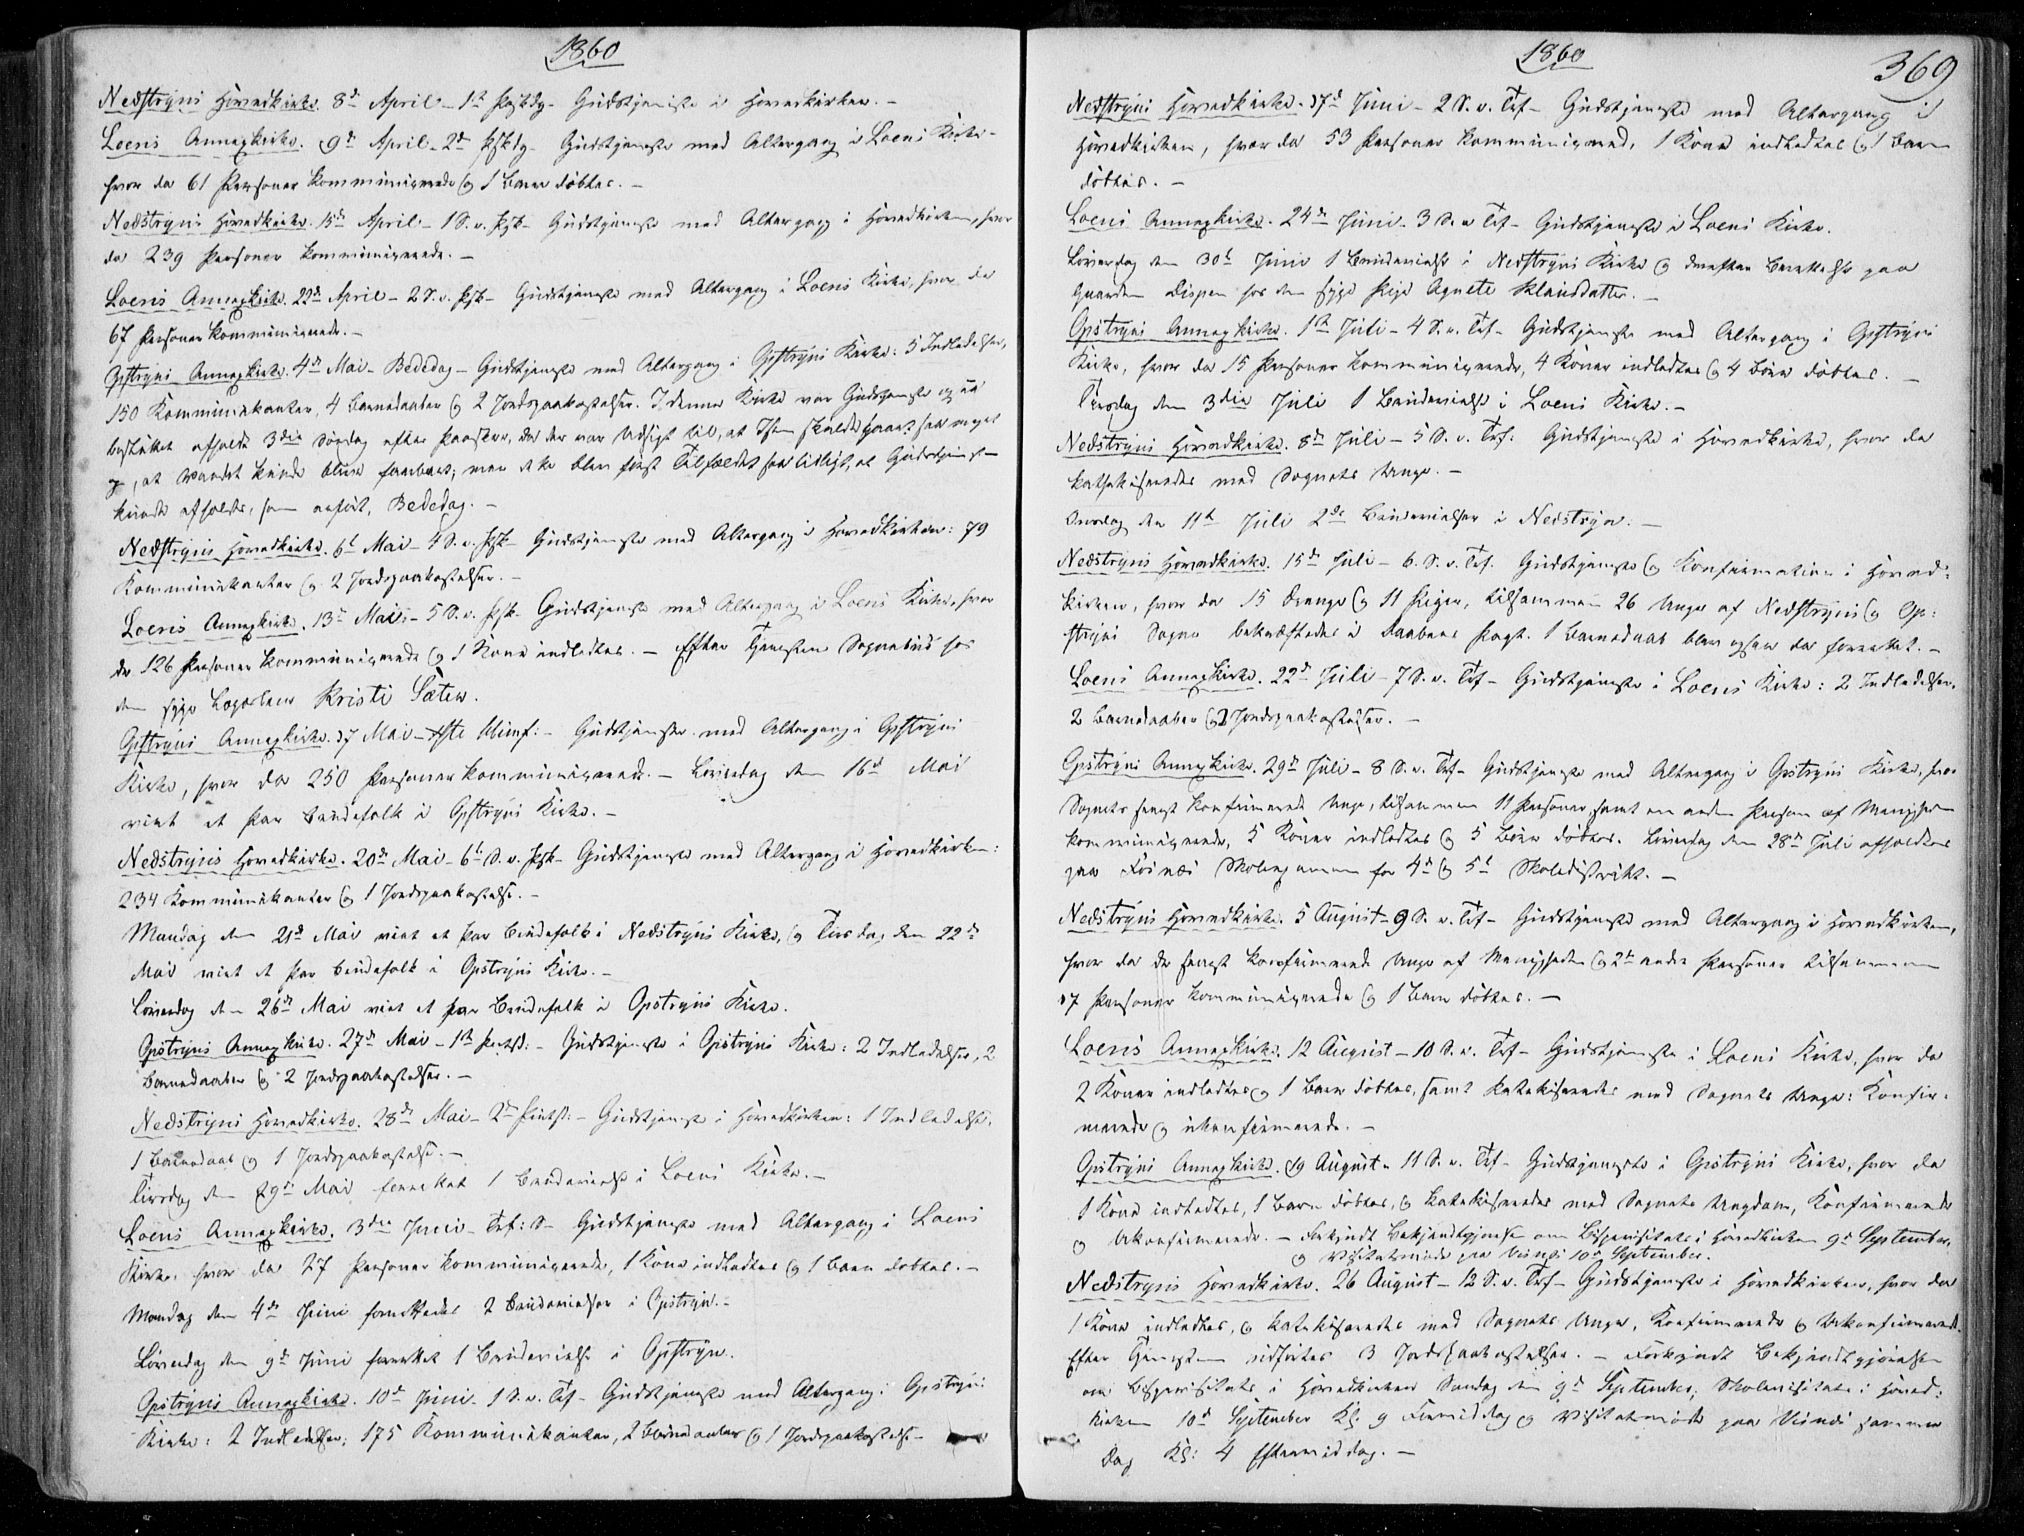 1860
Nedstryns Hovedkirke. 8de April – 1ste Paaskdg – Gudstjeneste i Hovedkirken. –
Loens Annexkirke. 9de April – 2den Pskdg – Gudstjeneste med Altergang i Loens Kirke –
hvor da 61 Personer kommunicerede og 1 Barn döbtes. –
Nedstryns Hovedkirke. 15de April – 1 S. e. Psk – Gudstjeneste med Altergang i Hovedkirken, hvor
da 239 Personer kommunicerede. –
Loens Annexkirke. 22de April – 2 S. e. Psk – Gudstjeneste med Altergang i Loens Kirke, hvor da
67 Personer kommunicerede. –
Opstryns Annexkirke. 4de Mai – Bededag – Gudstjeneste med Altergang i Opstryns Kirke: 5 Indledelser,
150 Kommunikanter, 4 Barnedaaber og 2 Jordspaakastelser. I denne Kirke var Gudstjeneste ogsaa
afholdt 3die Söndag efter Paaske, da der var Udsigt til, at Isen skulde saa meget
, at Vandet kunde blive farbart; men ikke blev först Tilfældet saa tidligt, at Gudstjeneste
kunde afholdes, som anfört, Bededag. –
Nedstryns Hovedkirke. 6te Mai – 4 S. e. Psk – Gudstjeneste med Altergang i Hovedkirken: 79
Kommunikanter og 2 Jordspaakastelser. –
Loens Annexkirke. 13de Mai – 5 S. e. Psk – Gudstjeneste med Altergang i Loens Kirke, hvor
da 126 Personer kommunicerede og 1 Kone indledtes. – Efter Tjenesten Sognebud hos
den syge Kristi Sæten.
Opstryns Annexkirke. 17 Mai – Chr. Himf: – Gudstjeneste med Altergang i Opstryns
Kirke, hvor da 250 Personer kommunicerede. – den 16de Mai
viet et Par Brudefolk i Opstryns Kirke. –
Nedstryns Hovedkirke. 20de Mai – 6te S. e. Psk – Gudstjeneste med Altergang i Hovedkirken:
234 Kommunikanter og 1 Jordspaakastelse. –
Mandag den 21de Mai viet et Par Brudefolk i Nedstryns Kirke, og Tirsdag den 22de
Mai viet et Par Brudefolk i Opstryns Kirke. –
Löverdag den 26de Mai viet et Par Brudefolk i Opstryns Kirke.
Opstryns Annexkirke. 27de Mai – 1ste Pintsd: – Gudstjeneste i Opstryns Kirke: 2 Indledelser, 2
Barnedaaber og 2 Jordspaakastelser. –
Nedstryns Hovedkirke. 28de Mai – 2den Pintsd: – Gudstjeneste i Hovedkirken: 1 Indledelse,
1 Barnedaab og 1 Jordspaakastelse. –
Tirsdag den 29de Mai forrettet 1 Brudevielse i Loens Kirke. –
Loens Annexkirke. 3die Juni – Tref: S – Gudstjeneste med Altergang i Loens
Kirke, hvor da 27 Personer kommunicerede, 1 Kone indledtes og 1 Barn döbtes. –
Mandag den 4de Juni forrettedes 2 Brudevielser i Opstryn. –
Löverdag den 9de Juni forrettet 1 Brudevielse i Opstryn.
Opstryns Annexkirke. 10de Juni – 1 S. e. Tref – Gudstjeneste med Altergang i Opstryns
Kirke: 2 Indledelser, 175 Kommunikanter, 2 Barnedaaber og 1 Jordspaakastelse –
1860
369
Nedstryns Hovedkirke. 17de Juni – 2 S. e. Tref – Gudstjeneste med Altergang i
Hovedkirken, hvor da 53 Personer kommunicered, 1 Kone indledtes og 1 Barn
döbtes. –
Loens Annexkirke. 24de Juni – 3 S. e. Tref – Gudstjeneste i Loens Kirke.
Löverdag den 30te Juni 1 Brudevielse i Nedstryns Kirke og derefter Berettelse paa
Gaarden hos den syge Pige Agnete Klausdatter. –
Opstryns Annexkirke. 1ste Juli – 4 S. e. Tref – Gudstjeneste med Altergang i Opstryns
Kirke, hvor da 15 Personer kommunicerede, 4 Koner indledtes og 4 Börn döbtes. –
Tirsdag den 3die Juli 1 Brudevielse i Loens Kirke. –
Nedstryns Hovedkirke. 8de Juli – 5 S. e. Tref: Gudstjeneste i Hovedkirke, hvor da
katekiseredes med Sognets Unge. –
Onsdag den 11te Juli 2de Brudevielser i Nedstryn. –
Nedstryns Hovedkirke. 15de Juli – 6. S. e. Tref. Gudstjeneste og Konfirmation i Hoved-
kirken, hvor da 15 Drenge og 11 Piger, tilsammen 26 Unge af Nedstryns og Op:
stryns Sogne bekræftedes i Daabens Pagt. 1 Barnedaab blev ogsaa da forrettet. –
Loens Annexkirke. 22de Juli – 7 S. e. Tref – Gudstjeneste i Loens Kirke: 2 Indledelser,
2 Barnedaaber og 2 Jordspaakastelser. –
Opstryns Annexkirke. 29de Juli – 8 S. e. Tref – Gudstjeneste med Altergang i Opstryns Kirke, hvor
Sognets senest konfirmerede Unge, tilsammen 11 Personer samt en anden Person af Menigheden
kommunicerede, 5 Koner indledtes og 5 Börn döbtes. Löverdag den 28de Juli afholdtes
paa Skoleexamen for 4de og 5te Skoledistrikt. –
Nedstryns Hovedkirke. 5 August – 9 S. e. Tref – Gudstjeneste med Altergang i Hovedkirken,
hvor da de senest konfirmerede Unge af Menigheden og 2de andre Personer tilsammen
17 Personer kommunicerede og 1 Barn döbtes. –
Loens Annexkirke. 12 August – 10 S. e. Tref – Gudstjeneste i Loens Kirke, hvor da
2 Koner indledtes og 1 Barn döbtes, samt katekiseredes med Sognets Unge: Konfir-
merede og ukonfirmerede. –
Opstryns Annexkirke. 19 August – 11 S. e. Tref – Gudstjeneste i Opstryns Kirke, hvor da
1 Kone indledtes, 1 Barn döbtes, og katekiseredes med Sognets Ungdom, Konfirmerede
og Ukonfirmerede. – Forkyndt Bekjendtgjörelse om Bispevisitats i Hovedkirken 9de September,
og Visitatsmöde paa Vinsnes 10de September.
Nedstryns Hovedkirke. 26 August – 12 S. e. Tref – Gudstjeneste i Hovedkirken, hvor da
1 Kone indledtes, og katekiseredes med Sognets Unge, Konfirmerede og Ukonfirmerede.
Efter Tjenesten udförtes 3 Jordspaakastelser. – Forkyndt Bekjendtgjörelse
om Bispevisitats i Hovedkirken Söndag den 9de September, Skolevisitats i Hoved:
kirken 10de September Kl. 9 Formiddag og Visitatsmöde paa samme
Dag Kl: 4 Eftermiddag. –